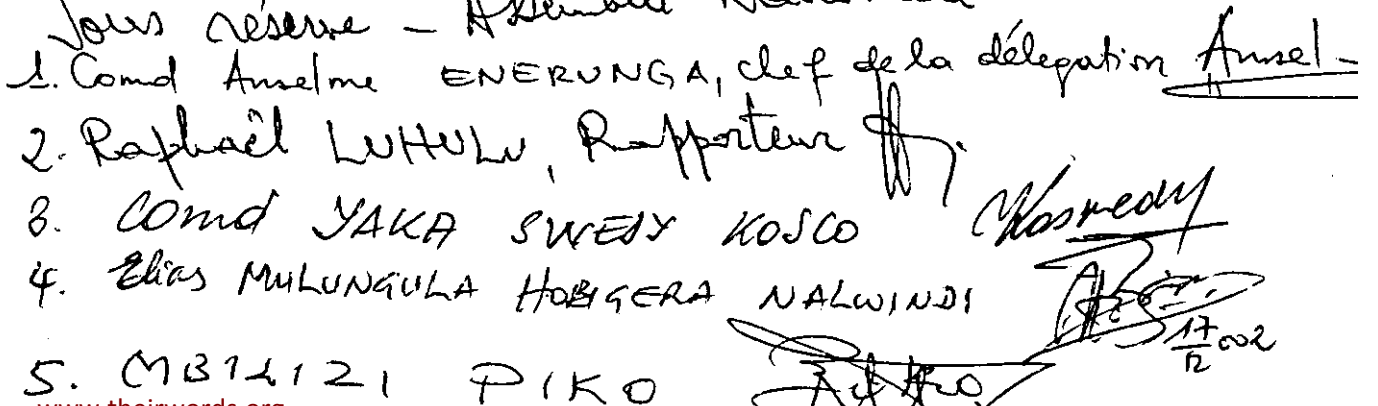 Sous réserve - Assemblée
1. Comd Anselme ENERUNGA, chef de la délégation Ansel-
2. Raphaël LUHULU, Rapporteur
3. Comd YAKA SWEDY KOSCO Koswedy
4. Elias MULUNGULA HOBIGERA NALWINDI
17/12 002
5. MBILIZI PIKO
www.theirwords.org